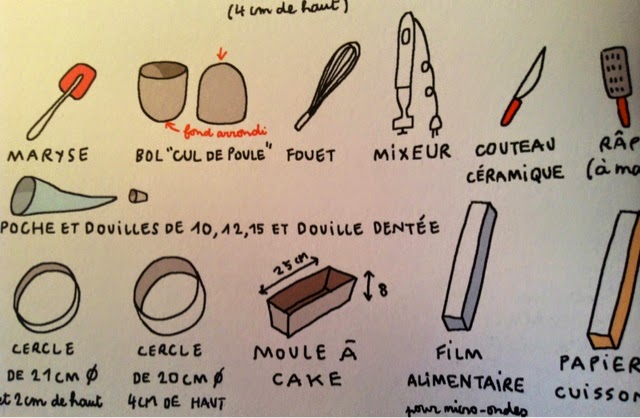 (4 cm de haut)
fond arrondi
MARYSE
BOL "CUL DE POULE"
FOUET
MIXEUR
COUTEAU
CÉRAMIQUE
RÂP
(à ma
POCHE ET DOUILLES DE 10,12,15 ET DOUILLE DENTÉE
25 cm
8
CERCLE
DE 21 CM Ø
et 2 cm de haut
CERCLE
DE 20 CM Ø
4 CM DE HAUT
MOULE À
CAKE
FILM
ALIMENTAIRE
pour micro-ondes
PAPIER
CUISSON